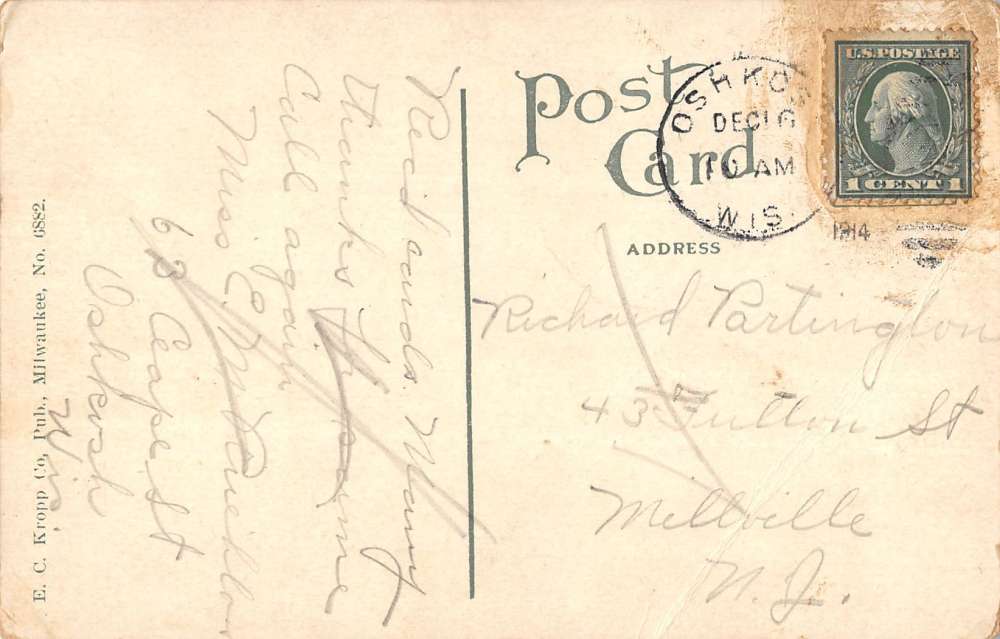 Post
Card
OSHKOSH
DEC 16
10 AM
WIS.
1914
U.S. POSTAGE
1 CENT 1
ADDRESS
Richard Partington
43 Fulton St
Millville
N. J.
Rec'd cards. Many
thanks
same
Call again
Miss E. M.
63 Ceape St
Oshkosh
Wis.
E. C. Kropp Co, Pub., Milwaukee, No. 6882.